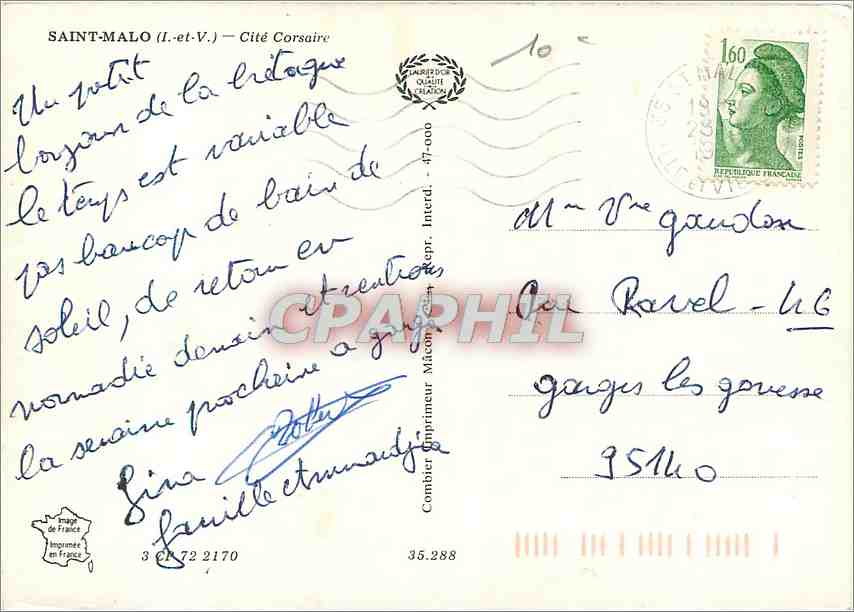 SAINT-MALO (I.-et-V.) — Cité Corsaire
Un petit
bonjour de la bretagne
le temps est variable
pas baucoup de bain de
soleil, de retour en
normadie demain et rentrons
la semaine procheine a garge
Gina
famille
3 CP 72 2170
35.288
Image
de France
Imprimée
en France
LAURIER D'OR
DE LA
QUALITÉ
CRÉATION
Combier Imprimeur Mâcon Repr. Interd. - 47-000
CPAPHIL
10 c
ST MALO
ILLE ET VIL
1,60
POSTES
REPUBLIQUE FRANÇAISE
Mr Vve gaudon
Ravel - 4G
garges les gonesse
95140